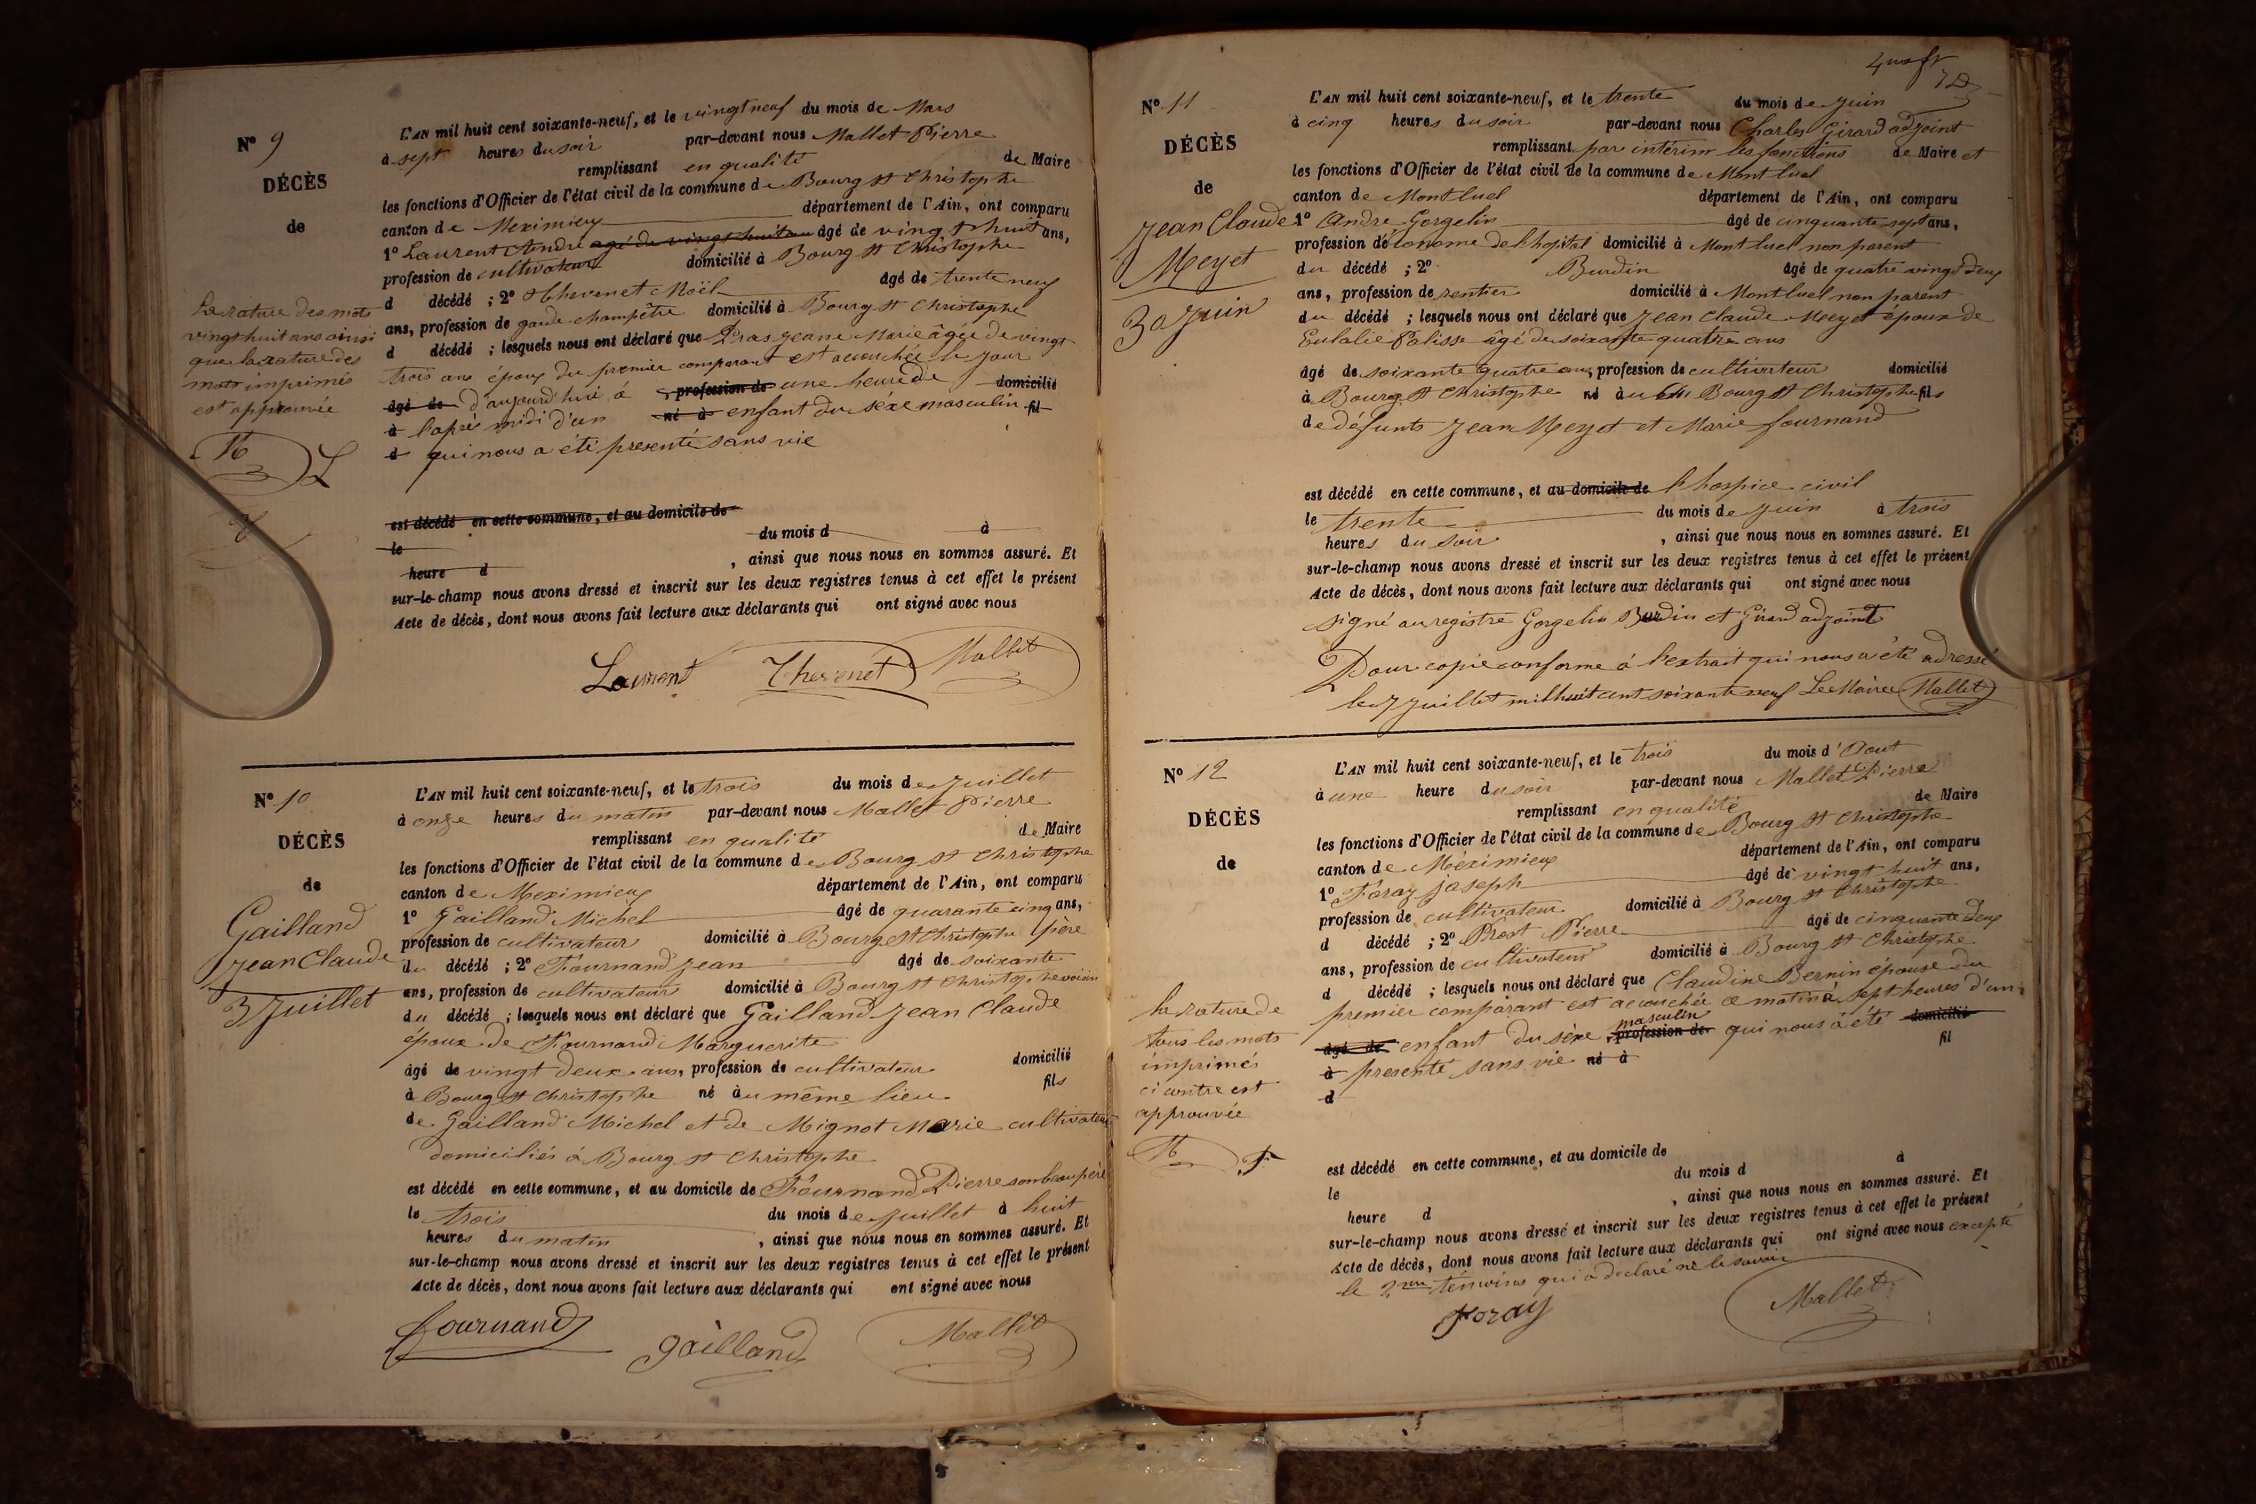 N° 9
DÉCÈS
de
La rature des mots
vingt huit ans ainsi
que la rature des
mots imprimés
est approuvée
L'AN mil huit cent soixante-neuf, et le vingt neuf du mois de Mars
à sept heures du soir par-devant nous Mallet Pierre
remplissant en qualité de Maire
les fonctions d'Officier de l'état civil de la commune de Bourg St Christophe
canton de Meximieux département de l'Ain, ont comparu
1° Laurent André agé de vingt huit an âgé de vingt huit ans,
profession de cultivateur domicilié à Bourg St Christophe
d décédé ; 2° Thevenet Noël âgé de trente neuf
ans, profession de garde champêtre domicilié à Bourg St Christophe
d décédé ; lesquels nous ont déclaré que Pras Jeanne Marie âgée de vingt
trois ans épouse du premier comparant est accouchée ce jour
âgé de d'aujourd'hui à , profession de une heure de domicilié
à l'après midi d'un né à enfant du séxe masculin fil
d qui nous a été presenté sans vie
est décédé en cette commune, et au domicile de
le du mois d à
heure d , ainsi que nous nous en sommes assuré. Et
sur-le-champ nous avons dressé et inscrit sur les deux registres tenus à cet effet le présent
Acte de décès, dont nous avons fait lecture aux déclarants qui ont signé avec nous
Laurent Thevenet Mallet
N° 10
DÉCÈS
de
Gailland
Jean Claude
3 Juillet
L'AN mil huit cent soixante-neuf, et le trois du mois de Juillet
à onze heures du matin par-devant nous Mallet Pierre
remplissant en qualité de Maire
les fonctions d'Officier de l'état civil de la commune de Bourg St Christophe
canton de Meximieux département de l'Ain, ont comparu
1° Gailland Michel âgé de quarante cinq ans,
profession de cultivateur domicilié à Bourg St Christophe père
du décédé ; 2° Fournand Jean âgé de soixante
ans, profession de cultivateur domicilié à Bourg St Christophe voisin
du décédé ; lesquels nous ont déclaré que Gailland Jean Claude
époux de Fournand Marguerite
âgé de vingt deux ans, profession de cultivateur domicilié
à Bourg St Christophe né au même lieu fils
de Gailland Michel et de Mignot Marie cultivateurs
domiciliés à Bourg St Christophe
est décédé en cette commune, et au domicile de Fournand Pierre son beau père
le trois du mois de Juillet à huit
heures du matin , ainsi que nous nous en sommes assuré. Et
sur-le-champ nous avons dressé et inscrit sur les deux registres tenus à cet effet le présent
Acte de décès, dont nous avons fait lecture aux déclarants qui ont signé avec nous
fournand gailland Mallet
N° 11
DÉCÈS
de
Jean Claude
Meyet
30 Juin
L'AN mil huit cent soixante-neuf, et le trente du mois de Juin
à cinq heures du soir par-devant nous Charles Girard adjoint
remplissant par intérim les fonctions de Maire et
les fonctions d'Officier de l'état civil de la commune de Montluel
canton de Montluel département de l'Ain, ont comparu
1° André Gorgelin âgé de cinquante sept ans,
profession d'économe de l'hopital domicilié à Montluel non parent
du décédé ; 2° Burdin âgé de quatre vingt deux
ans, profession de rentier domicilié à Montluel non parent
du décédé ; lesquels nous ont déclaré que Jean Claude Meyet époux de
Eulalie Palisse âgé de soixante quatre ans
âgé de soixante quatre ans, profession de cultivateur domicilié
à Bourg St Christophe né au dit Bourg St Christophe fils
de défunts Jean Meyet et Marie fournand
est décédé en cette commune, et au domicile de l'hospice civil
le trente du mois de Juin à trois
heures du soir , ainsi que nous nous en sommes assuré. Et
sur-le-champ nous avons dressé et inscrit sur les deux registres tenus à cet effet le présent
Acte de décès, dont nous avons fait lecture aux déclarants qui ont signé avec nous
signé au registre Gorgelin Burdin et Girard adjoint
Pour copie conforme à l'extrait qui nous a été adressé
le 7 Juillet mil huit cent soixante neuf Le Maire Mallet
N° 12
DÉCÈS
de
La rature de
tous les mots
imprimés
ci contre est
approuvée
L'AN mil huit cent soixante-neuf, et le trois du mois d'Aout
à une heure du soir par-devant nous Mallet Pierre
remplissant en qualité de Maire
les fonctions d'Officier de l'état civil de la commune de Bourg St Christophe
canton de Méximieux département de l'Ain, ont comparu
1° Foray Joseph âgé de vingt huit ans,
profession de cultivateur domicilié à Bourg St Christophe
d décédé ; 2° Prost Pierre âgé de cinquante deux
ans, profession de cultivateur domicilié à Bourg St Christophe
d décédé ; lesquels nous ont déclaré que Claudine Bernin épouse du
premier comparant est accouchée ce matin à sept heures d'un
masculin
âgé de enfant du séxe , profession de qui nous a été domicilié
à presenté sans vie né à fil
d
est décédé en cette commune, et au domicile de
le du mois d à
heure d , ainsi que nous nous en sommes assuré. Et
sur-le-champ nous avons dressé et inscrit sur les deux registres tenus à cet effet le présent
Acte de décès, dont nous avons fait lecture aux déclarants qui ont signé avec nous excepté
le 2me témoins qui a declaré ne le savoir
foray Mallet